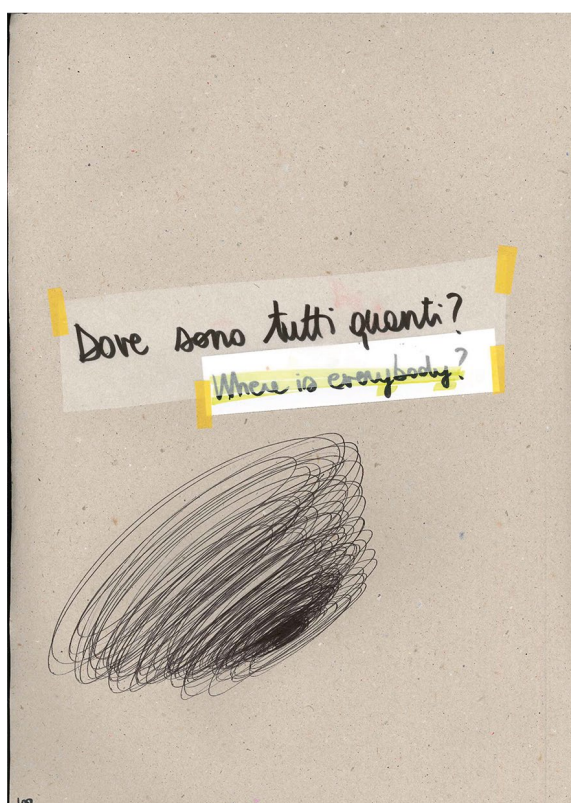 Dove sono tutti quanti?
Where is everybody?